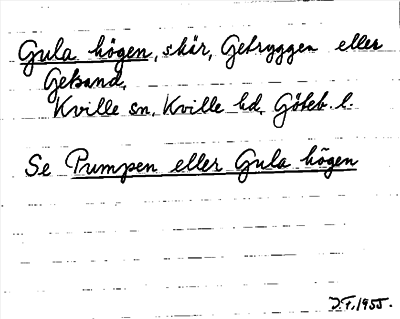 Gula högen, skär, Getryggen eller
Getsand,
Kville sn, Kville hd, Göteb. l.
Se Pumpen eller Gula högen
J.F. 1955.